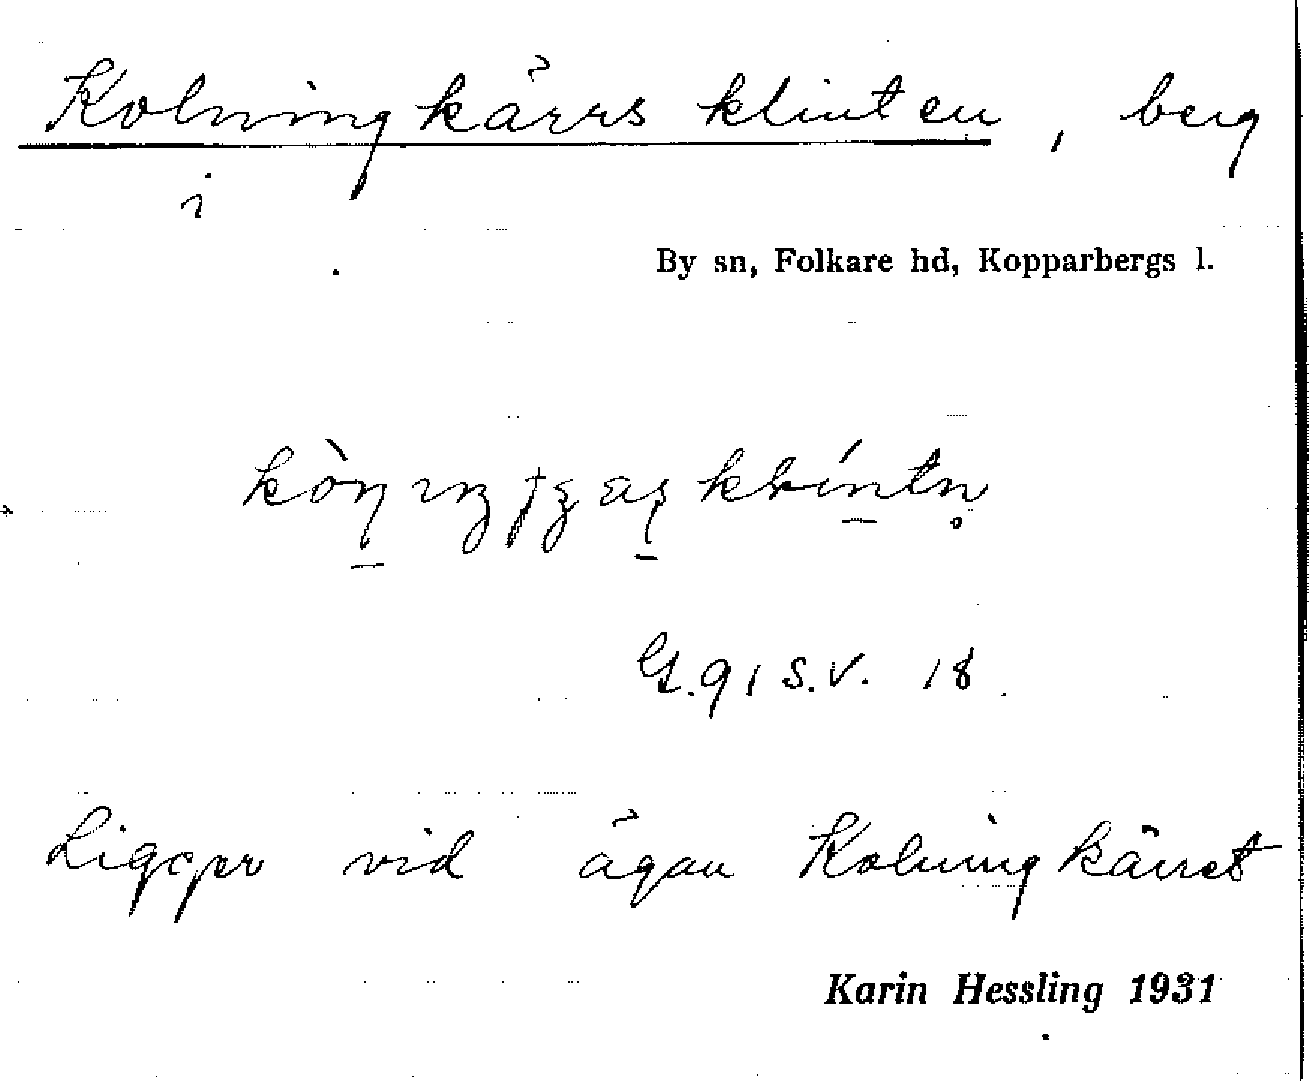 Kolningkärrs klinten, berg
i
By sn, Folkare hd, Kopparbergs l.
G. 91 S.V. 18.
Ligger vid ägan Kolningkärret
Karin Hessling 1931